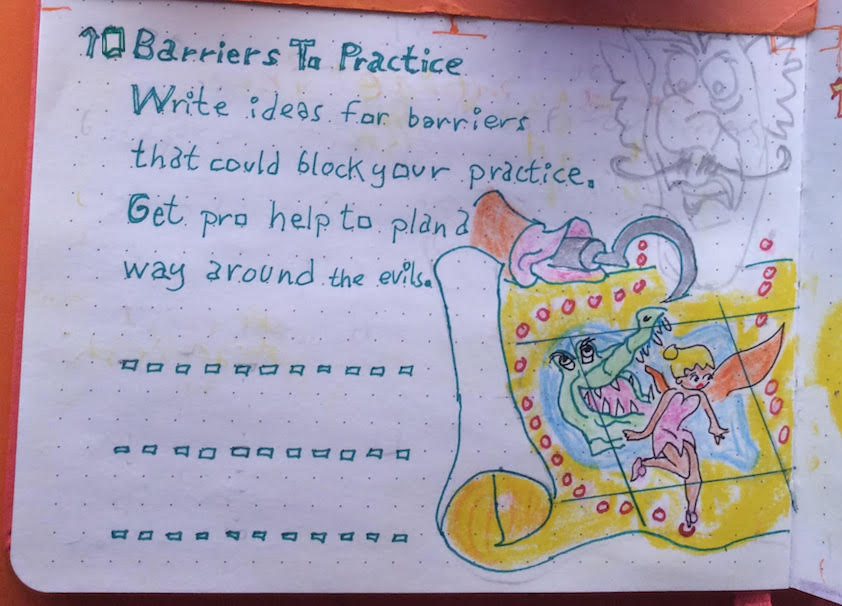 Barriers To Practice
Write ideas for barriers
that could block your practice.
Get pro help to plan a
way around the evils.